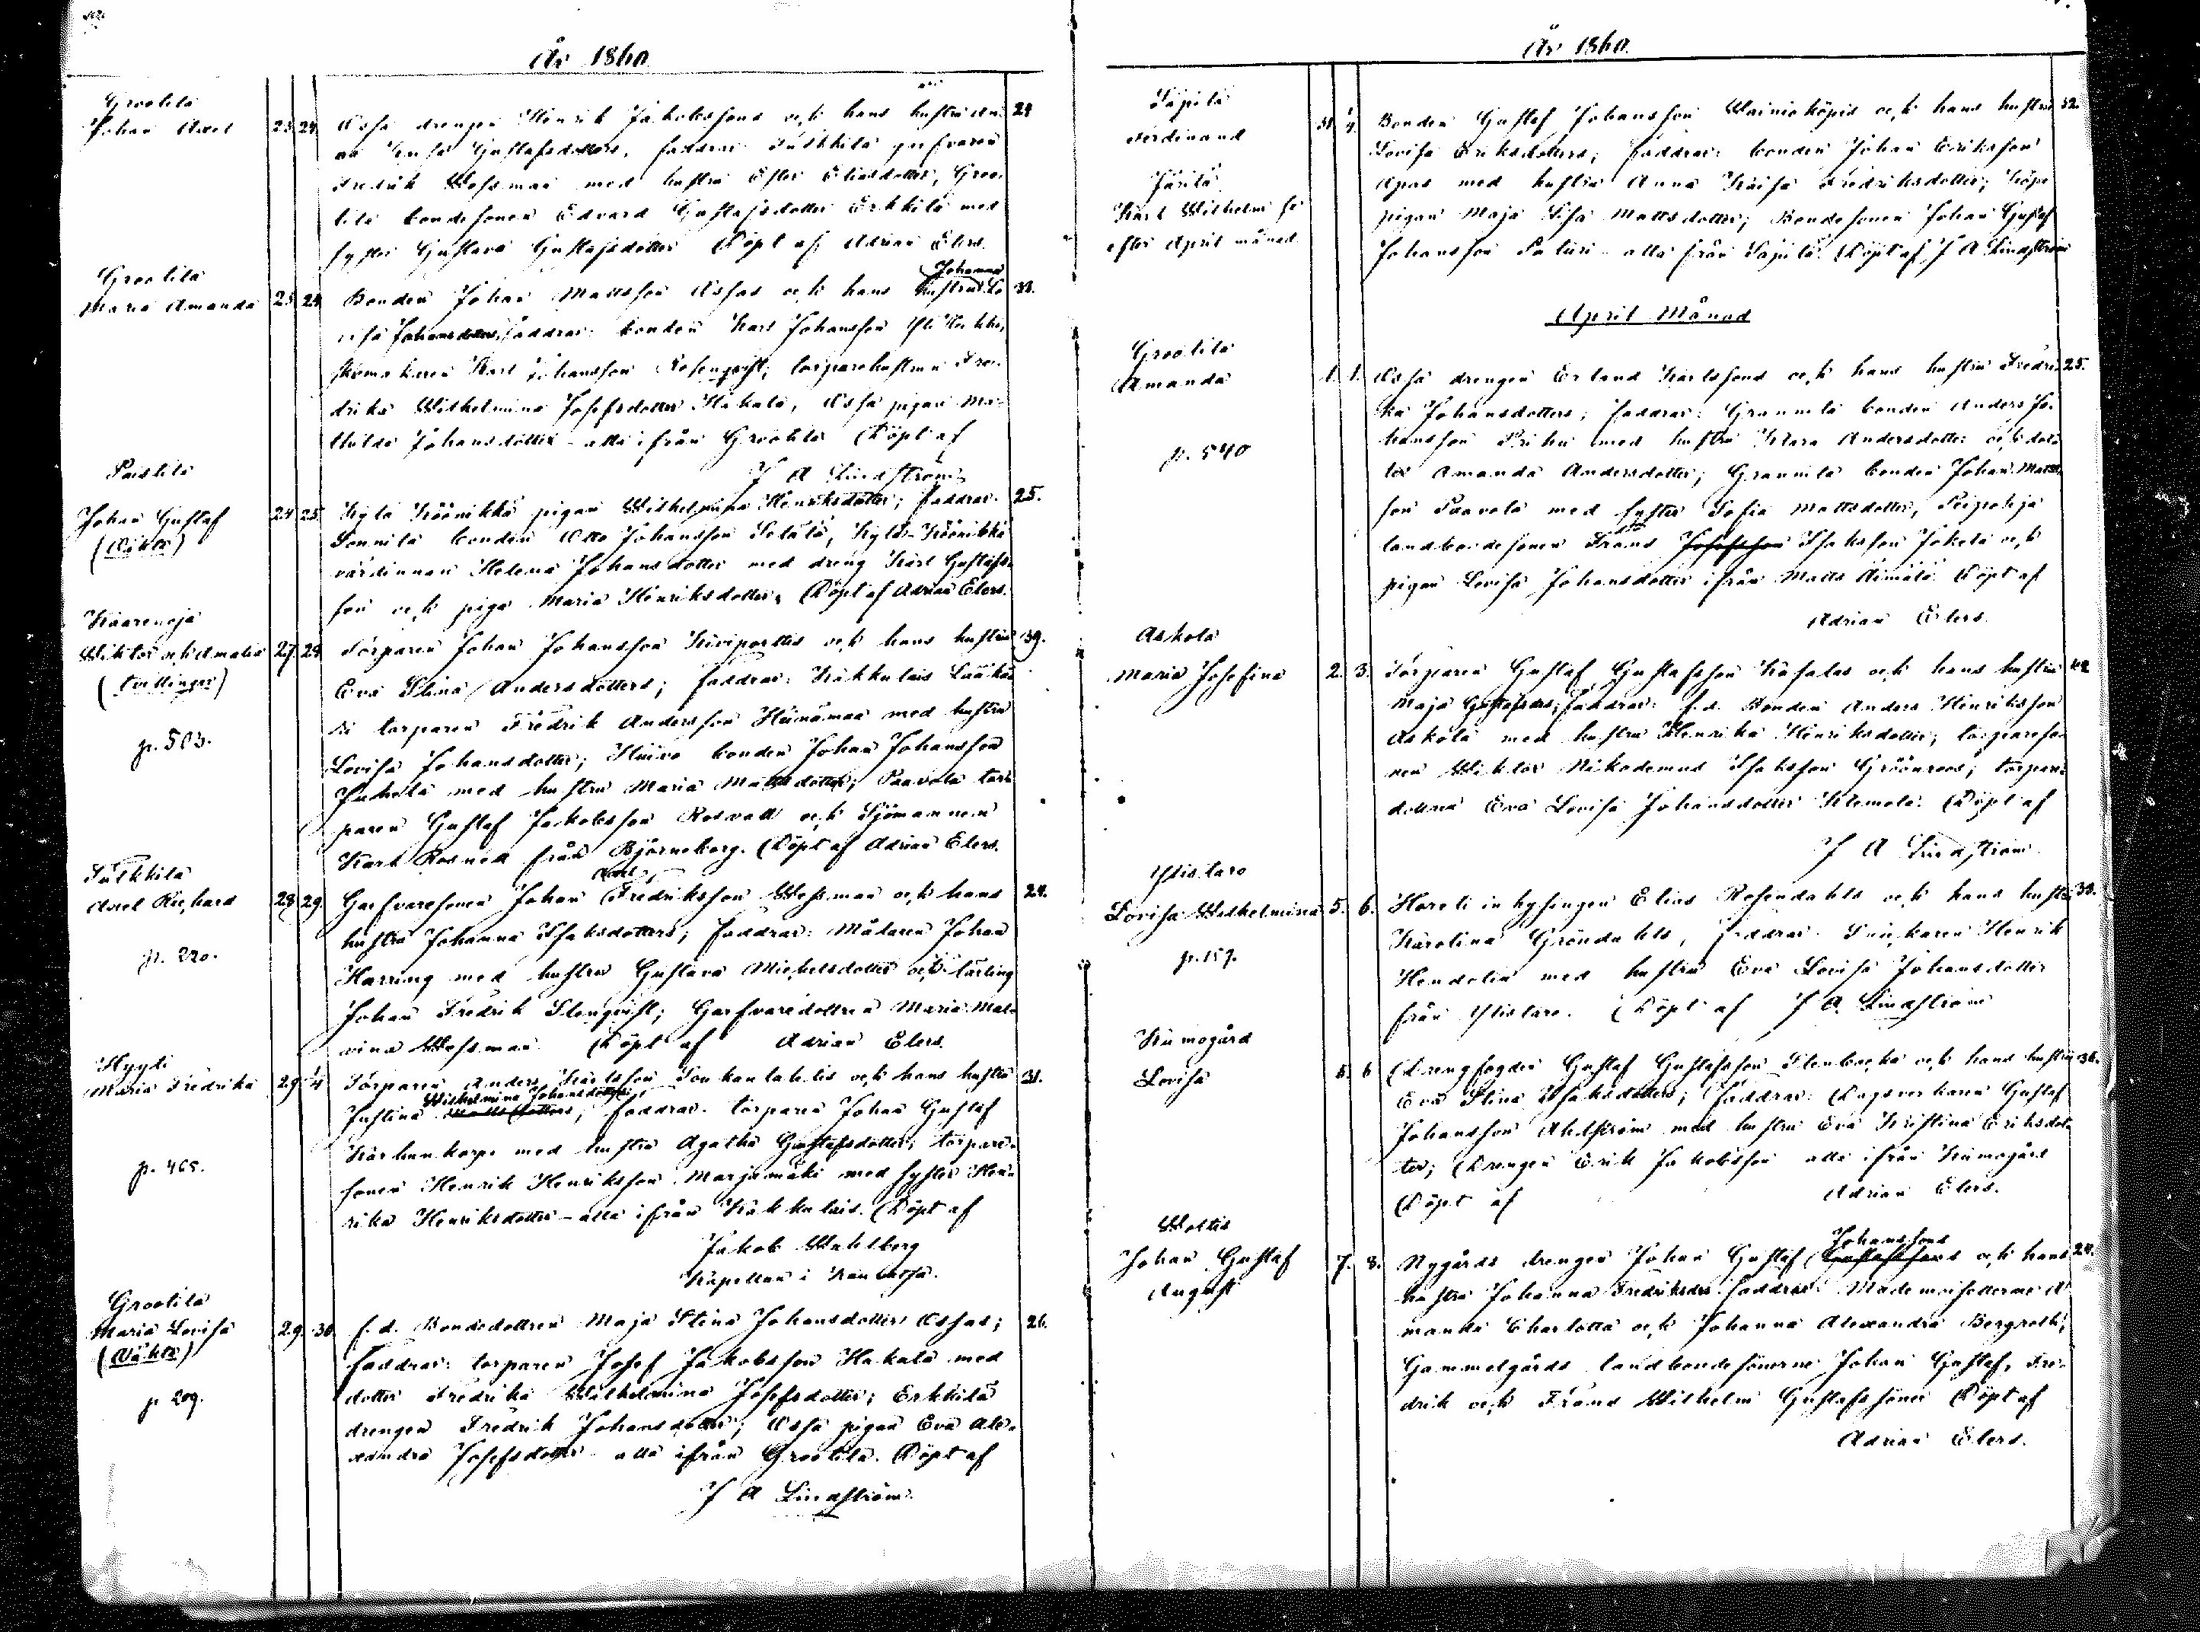 År 1860
Grootila
Johan Axel 23. 24.
Ossa drengen Henrik Jakobssons och hans hustru An- 29
na Lovisa Gustafsdotters, faddrar: Tulkkila garfvaren
Fredrik Wessman med hustru Ester Eliasdotter, Groo-
tila bondesonen Edvard Gustafsdotter Erkkilä med
syster Gustava Gustafsdotter Döpt af Adrian Elers.
Grootila
Maria Amanda 23. 25.
Johanna
Bonden Johan Mattsson Ossas och hans hustru Lo- 33.
visa Johansdotters, faddrar: bonden Karl Johansson
skomakaren Karl Johansson Rosenqvist; torparehustrun Fre-
drika Wilhelmina Josefsdotter Hakala, Ossa pigan Ma-
thilda Johansdotter – alla ifrån Grootila Döpt af
J A Lindström
Paistila
Johan Gustaf 24 25.
(Oäkta)
Kylä Köönikkä pigan Wilhelmina Henriksdotter; faddrar: 25.
Sonnila bonden Otto Johansson Sälälä, Kylä-Köönikkä
värdinnan Helena Johansdotter med dreng Karl Gustafs-
son och piga Maria Henriksdotter, Döpt af Adrian Elers.
Kaarenoja
Wiktor och Amalia 27. 29.
(tvillingar)
p. 503.
Torparen Johan Johansson Kiviporttis och hans hustru 39.
Eva Stina Andersdotters; faddrar: Kukkulais
torparen Fredrik Andersson Heinämaa med hustru
Lovisa Johansdotter; Huivo bonden Johan Johansson
Juhola med hustru Maria Mattsdotter; Paavola tor-
paren Gustaf Jakobsson Rosvall och Sjömannen
Karl Rosnell från Björneborg. Döpt af Adrian Elers.
Tulkkila
Axel Richard 28. 29.
p. 220.
Karl
Garfvaresonen Johan Fredriksson Wessman och hans 24.
hustru Johanna Isaksdotters; faddrar: Målaren Johan
Harring med hustru Gustava Michelsdotter och lärling
Johan Fredrik Stenqvist; Garfvaredottren Maria Mal-
vina Wessman. Döpt af Adrian Elers.
Hyyti
Maria Fredrika 29. 1/4
p. 465.
Torparen Anders Karlsson Soukanlahtis och hans hustru 31.
Wilhelmina Johansdotter
Justina; faddrar: torparen Johan Gustaf
Karhunkorpi med hustru Agatha Gustafsdotter; torpare-
sonen Henrik Henriksson Marjamäki med syster Hen-
rika Henriksdotter – alla ifrån Kukkulais. Döpt af
Jakob Wahlberg
Kapellan i Kauvatsa.
Grootila
Maria Lovisa 29. 30.
(Oäkta)
p. 209.
f. d. Bondedottren Maja Stina Johansdotter Ossas; 26.
faddrar: torparen Josef Jakobsson Hakala med
dotter Fredrika Wilhelmina Josefsdotter; Erkkilä
drengen Fredrik Johansdotter; Ossa pigan Eva Ale-
xandra Josefsdotter – alla ifrån Grootila. Döpt af
J A Lindström.
År 1860.
Säpilä
Ferdinand 31. 1/4.
Järilä
Karl Wilhelm se
efter April månad
Bonden Gustaf Johansson Wainioköpis och hans hustru 32.
Lovisa Eriksdotters; faddrar: bonden Johan Eriksson
Apas med hustru Anna Kaisa Fredriksdotter; Köpi
pigan Maja Lisa Mattsdotter; Bondesonen Johan Gustaf
Johansson – alla från Säpilä. Döpt af J A Lindström
April Månad
Grootila
Amanda 1. 1.
p. 540
Ossa drengen Erland Karlssons och hans hustru Fredri- 25.
ka Johansdotters; faddrar: Grannila bonden Anders Jo-
hansson Prihu med hustru Klara Andersdotter och dot-
ter Amanda Andersdotter; Grannila bonden Johan Matts-
son Paavola med syster Sofia Mattsdotter, Peipohja
landbondesonen Frans Josefsson Isaksson Jokela och
pigan Lovisa Johansdotter ifrån Matts Äimälä Döpt af
Adrian Elers.
Askola
Maria Josefina 2. 3.
Torparen Gustaf Gustafsson Kasalas och hans hustru 42
Maja Gustafsdrs; faddrar: f. d. Bonden Anders Henriksson
Askola med hustru Henrika Henriksdotter; torpareso-
nen Wiktor Nikodemus Isaksson Gröönroos; torpare-
dottren Eva Lovisa Johansdotter Klemola. Döpt af
J A Lindström
Ylistaro
Lovisa Wilhelmina 5. 6.
p. 157.
Hareli inhysingen Elias Rosendahls och hans hustru 38.
Karolina Gröndahls, faddrar: Henrik
Hendolin med hustru Eva Lovisa Johansdotter
från Ylistaro. Döpt af J A. Lindström
Kumogård
Lovisa 5. 6
Drengfogden Gustaf Gustafsson Stenbacka och hans hustru 36.
Eva Stina Isaksdotters; faddrar: Dagsverkaren Gustaf
Johansson Ahlström med hustru Eva Kristina Eriksdot-
ter; Drengen Erik Jakobsson alla ifrån Kumogård
Döpt af Adrian Elers.
Woltis
Johan Gustaf 7. 8.
August
Johanssons
Nygårds drengen Johan Gustaf Gustafssons och hans 20.
hustru Johanna Fredriksdrs faddrar: Mademoisellerne A-
manda Charlotta och Johanna Alexandra Bergroth;
Gammelgårds landbondesönerne Johan Gustaf, Fre-
drik och Frans Wilhelm Gustafssöner Döpt af
Adrian Elers.